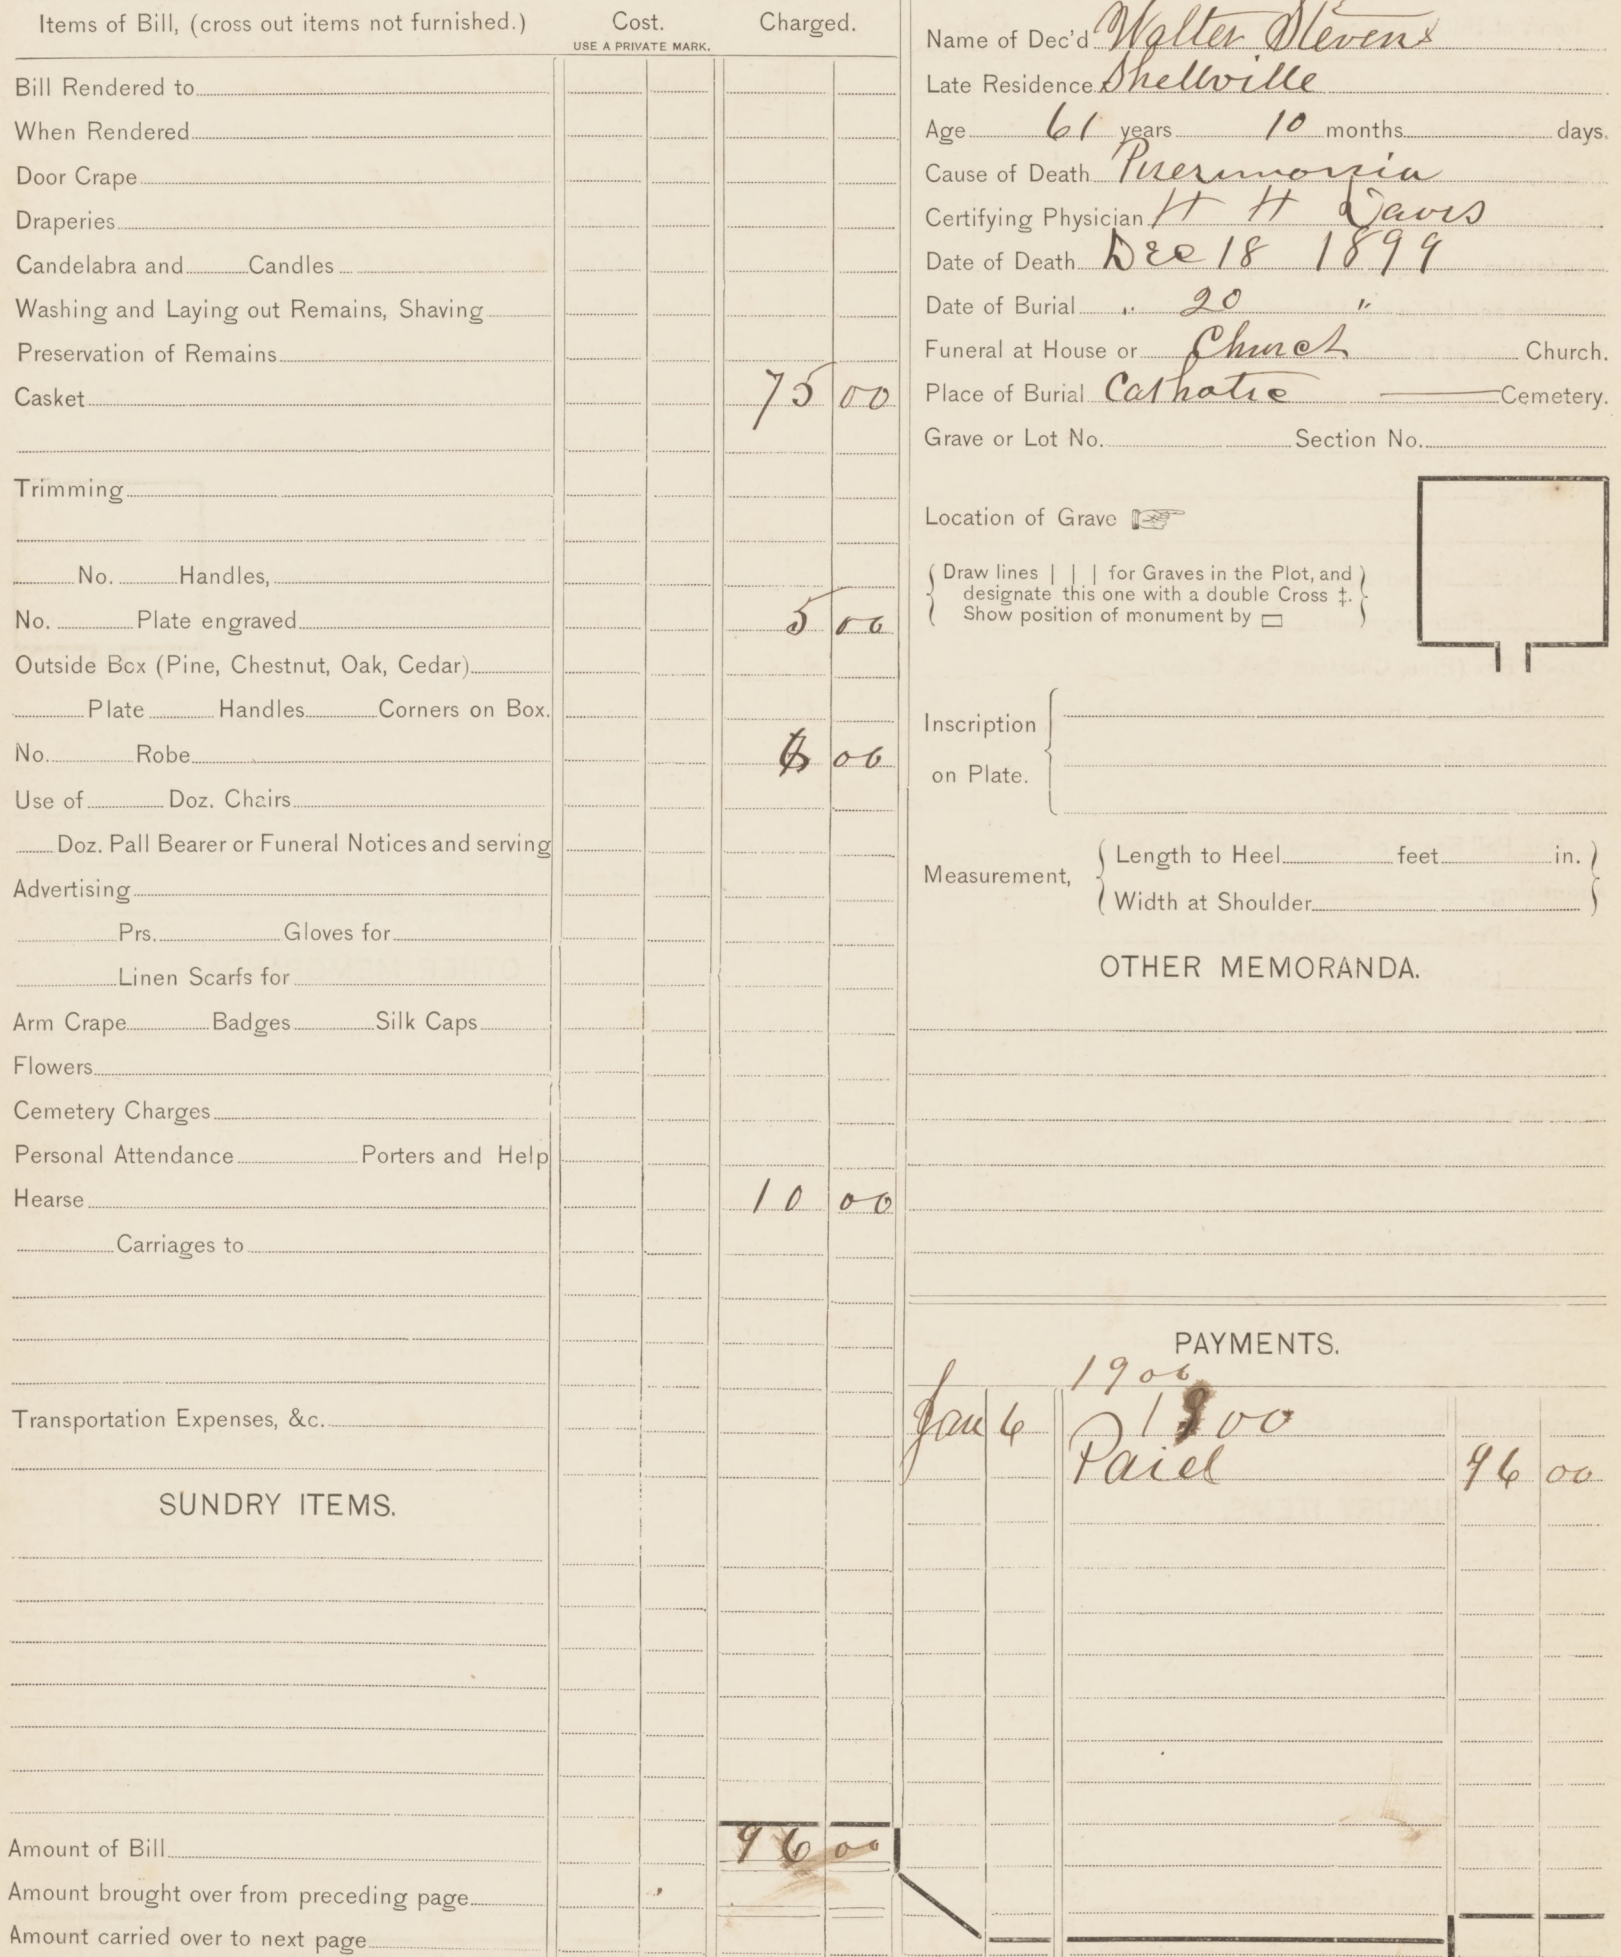 Items of Bill, (cross out items not furnished.) Cost. Charged.
USE A PRIVATE MARK.
Bill Rendered to
When Rendered
Door Crape
Draperies
Candelabra and Candles
Washing and Laying out Remains, Shaving
Preservation of Remains
Casket 75 00
Trimming
No. Handles,
No. Plate engraved 5 00
Outside Box (Pine, Chestnut, Oak, Cedar)
Plate Handles Corners on Box.
No. Robe 6 00
Use of Doz. Chairs
Doz. Pall Bearer or Funeral Notices and serving
Advertising
Prs. Gloves for
Linen Scarfs for
Arm Crape Badges Silk Caps
Flowers
Cemetery Charges
Personal Attendance Porters and Help
Hearse 10 00
Carriages to
Transportation Expenses, &c.
SUNDRY ITEMS.
Amount of Bill 96 00
Amount brought over from preceding page
Amount carried over to next page
Name of Dec'd Walter Stevens
Late Residence Shellville
Age 61 years 10 months days.
Cause of Death Pneumonia
Certifying Physician H H Davis
Date of Death Dec 18 1899
Date of Burial " 20 "
Funeral at House or Church Church.
Place of Burial Catholic Cemetery.
Grave or Lot No. Section No.
Location of Grave
Draw lines | | | for Graves in the Plot, and
designate this one with a double Cross ‡.
Show position of monument by
Inscription
on Plate.
Measurement,
Length to Heel feet in.
Width at Shoulder
OTHER MEMORANDA.
PAYMENTS.
1900
Jan 6 1900
Paid 96 00